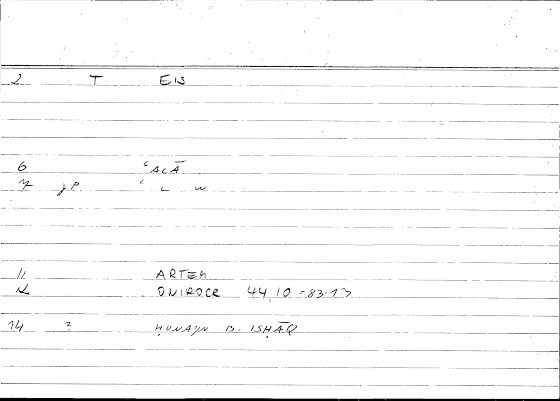 2 T EIS
6 ʿALĀ
7 jP. ʿ L W
11 ARTEM
12 ONIROCR 44,10 = 83.13
14 2 ḤUNAYN B. ISḤĀQ